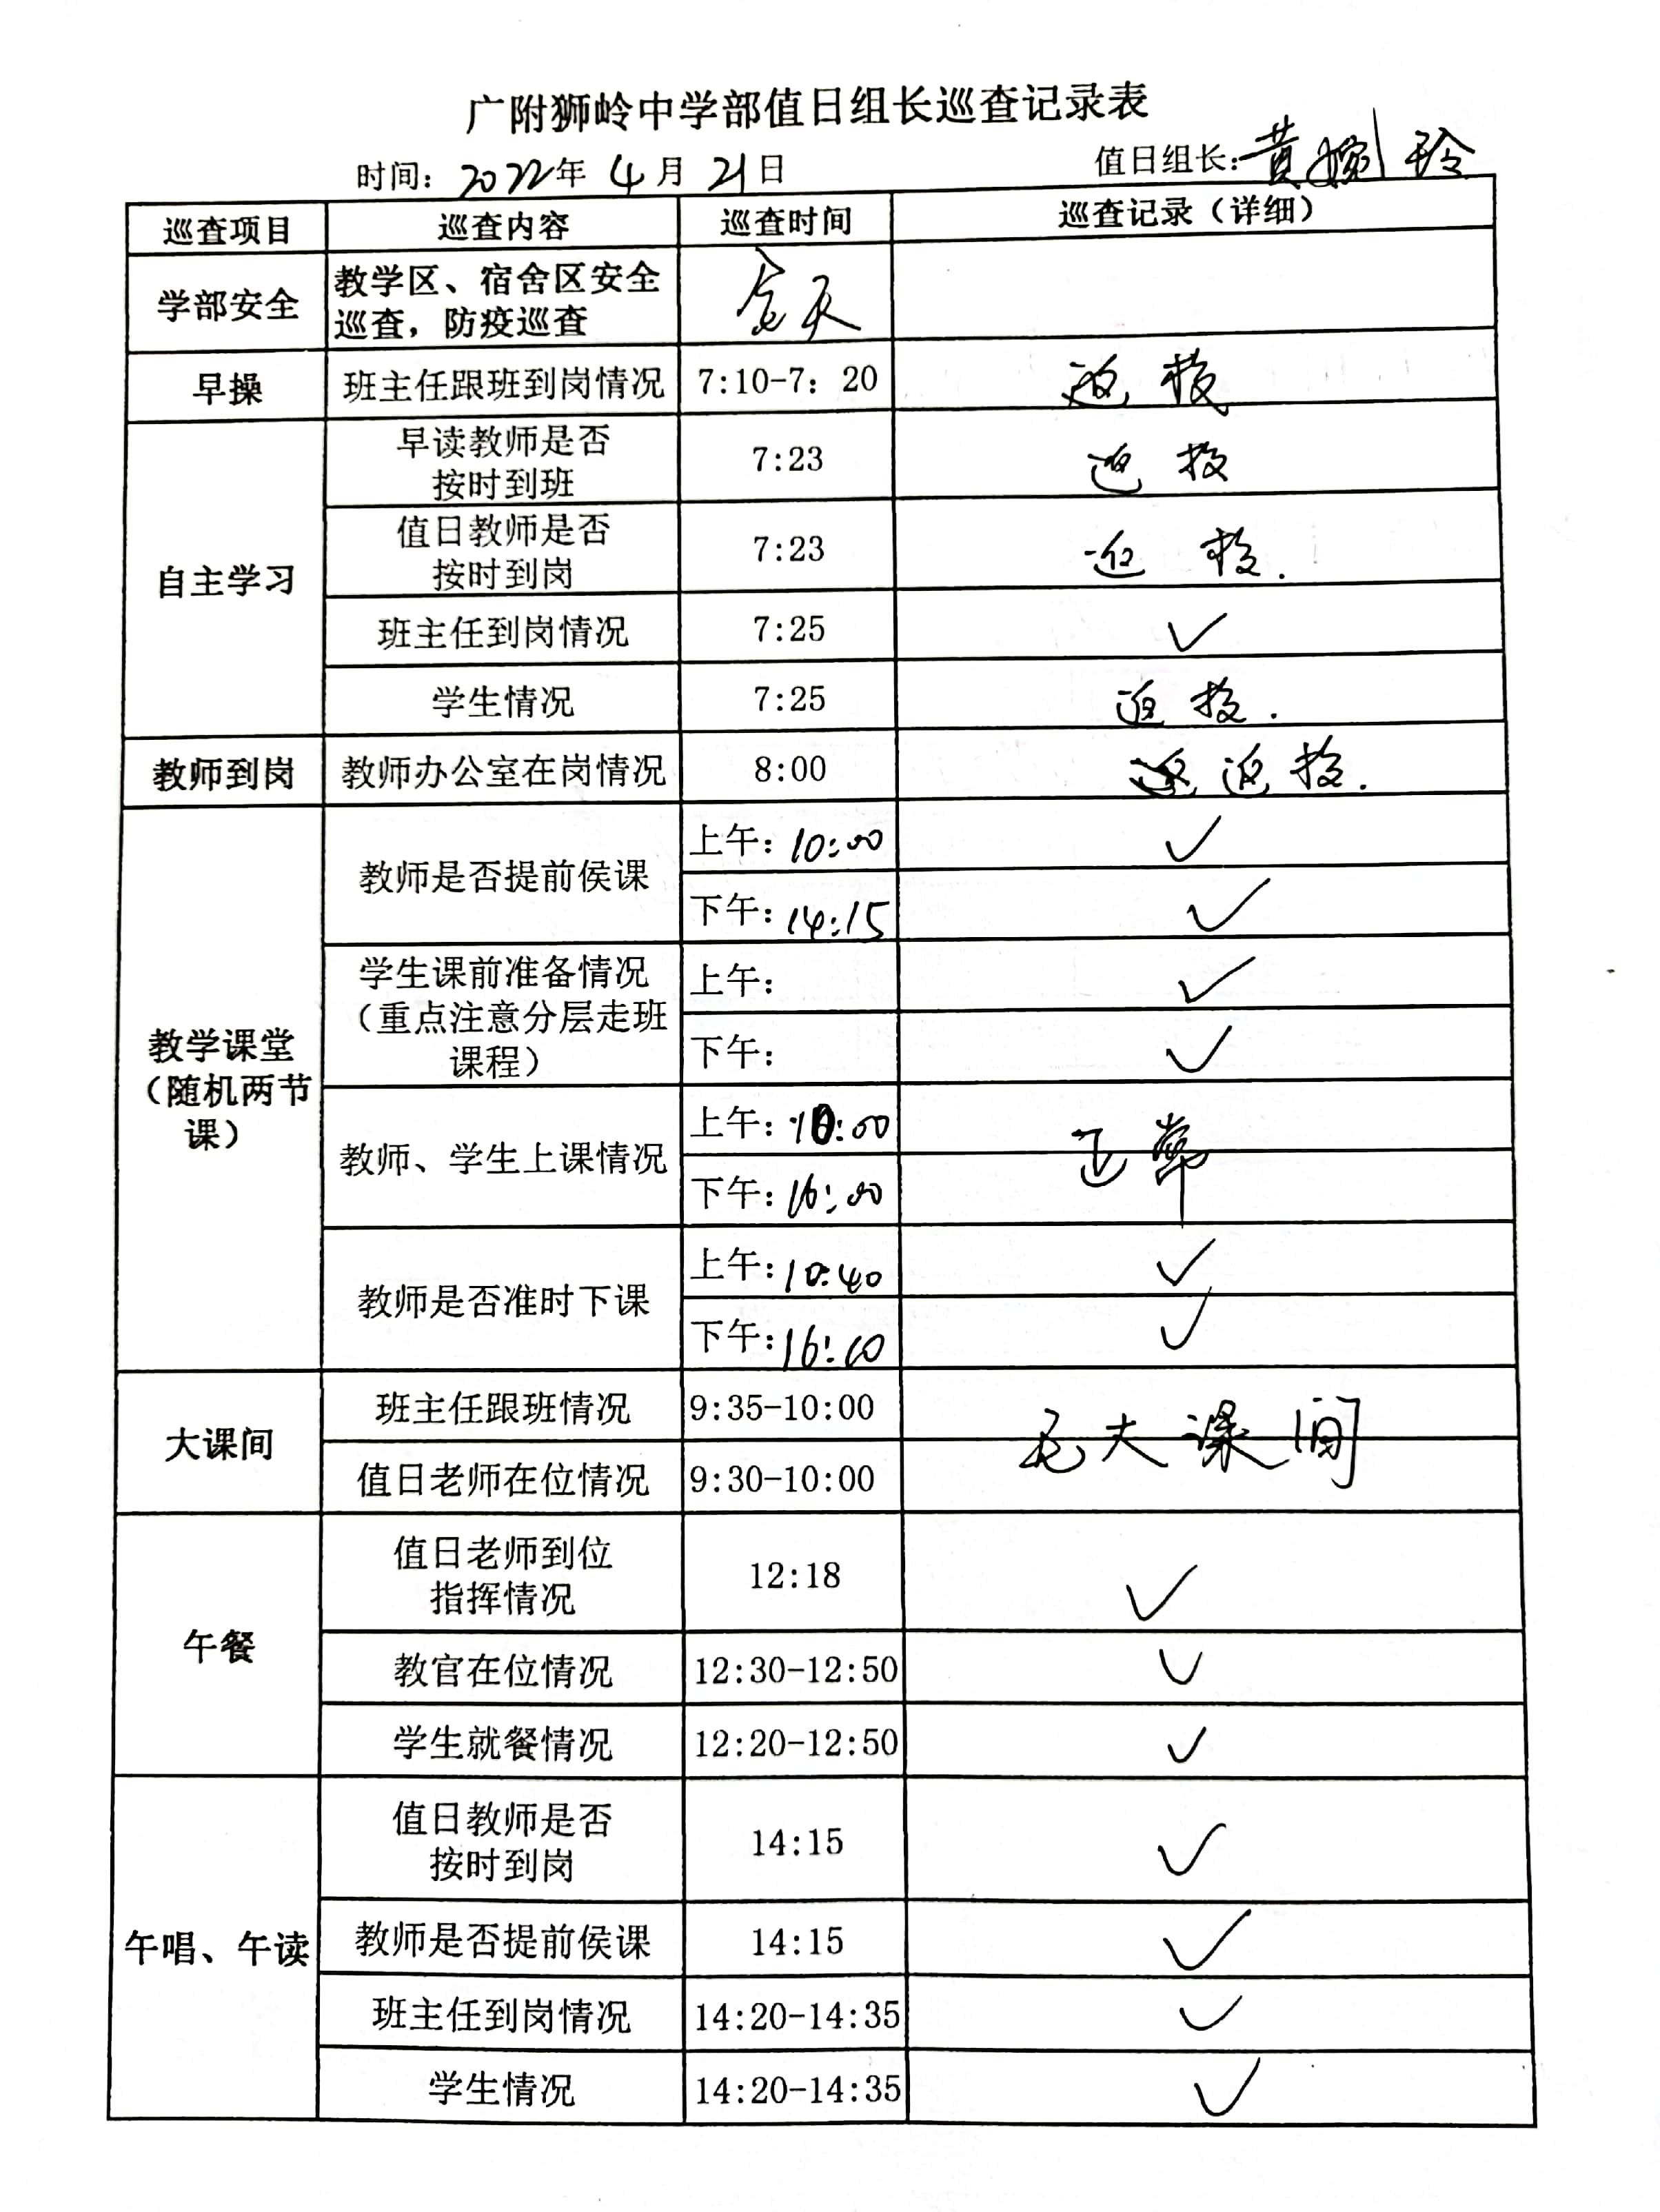 广附狮岭中学部值日组长巡查记录表
时间：2022年 4月 21日 值日组长：黄婉玲
巡查项目 巡查内容 巡查时间 巡查记录（详细）
学部安全 教学区、宿舍区安全 全天
巡查，防疫巡查
早操 班主任跟班到岗情况 7:10-7：20 返校
自主学习
早读教师是否 7:23 返校
按时到班
值日教师是否 7:23 返校.
按时到岗
班主任到岗情况 7:25 ✓
学生情况 7:25 返校.
教师到岗 教师办公室在岗情况 8:00 返校.
教学课堂
（随机两节
课）
教师是否提前侯课
上午：10:00 ✓
下午：14:15 ✓
学生课前准备情况
（重点注意分层走班
课程）
上午： ✓
下午： ✓
教师、学生上课情况
上午：10:00 正常
下午：16:00
教师是否准时下课
上午：10:40 ✓
下午：16:10 ✓
大课间
班主任跟班情况 9:35-10:00 无大课间
值日老师在位情况 9:30-10:00
午餐
值日老师到位 12:18 ✓
指挥情况
教官在位情况 12:30-12:50 ✓
学生就餐情况 12:20-12:50 ✓
午唱、午读
值日教师是否 14:15 ✓
按时到岗
教师是否提前侯课 14:15 ✓
班主任到岗情况 14:20-14:35 ✓
学生情况 14:20-14:35 ✓